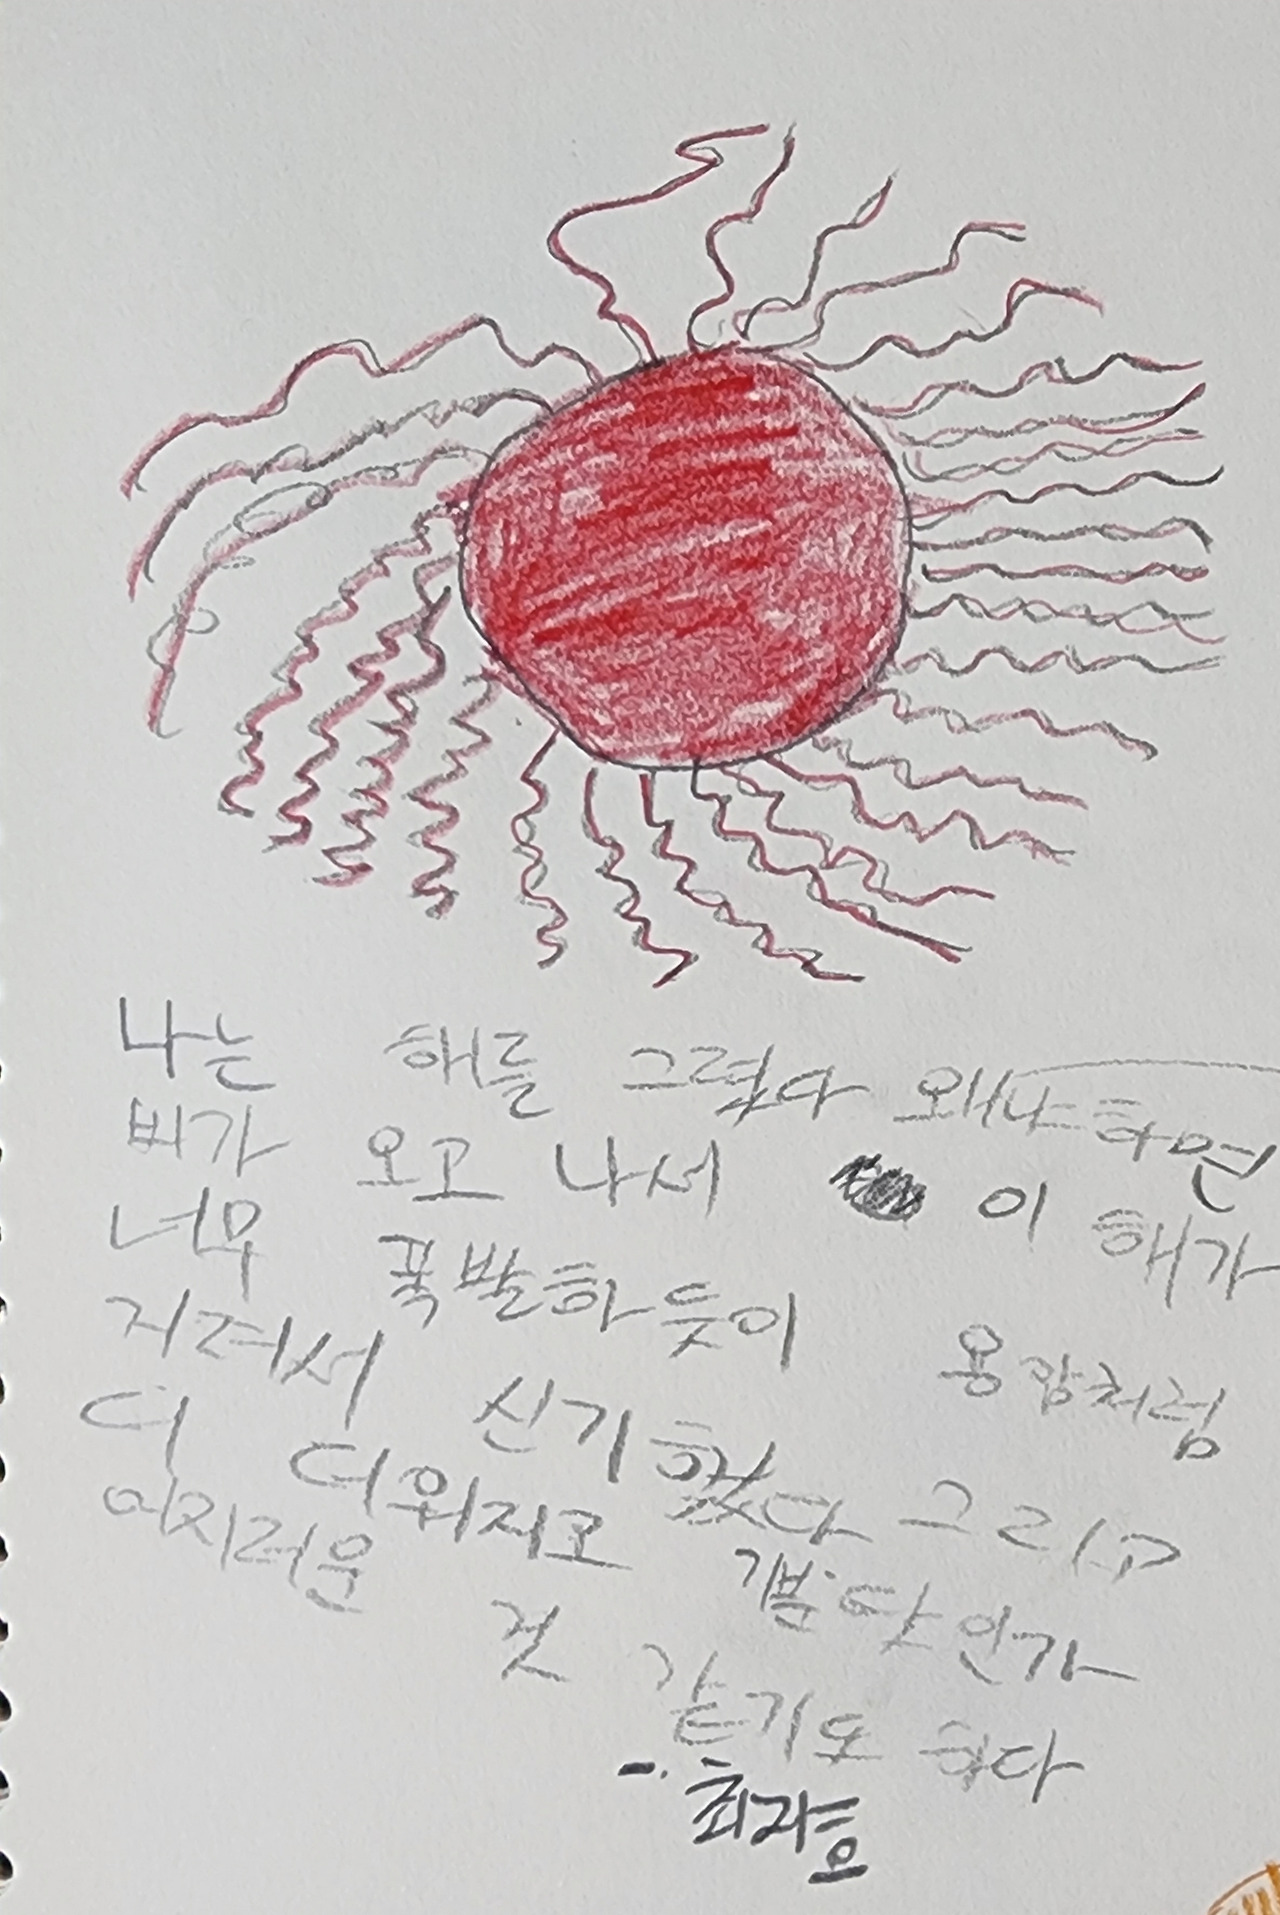 나는 해를 그렸다 왜냐하면
비가 오고 나서 이 해가
너무 폭발하듯이 용암처럼
지려서 신기했다 그리고
더 더워지고 기분 탓인가
어지러운 것 같기도 하다
-. 최자흔